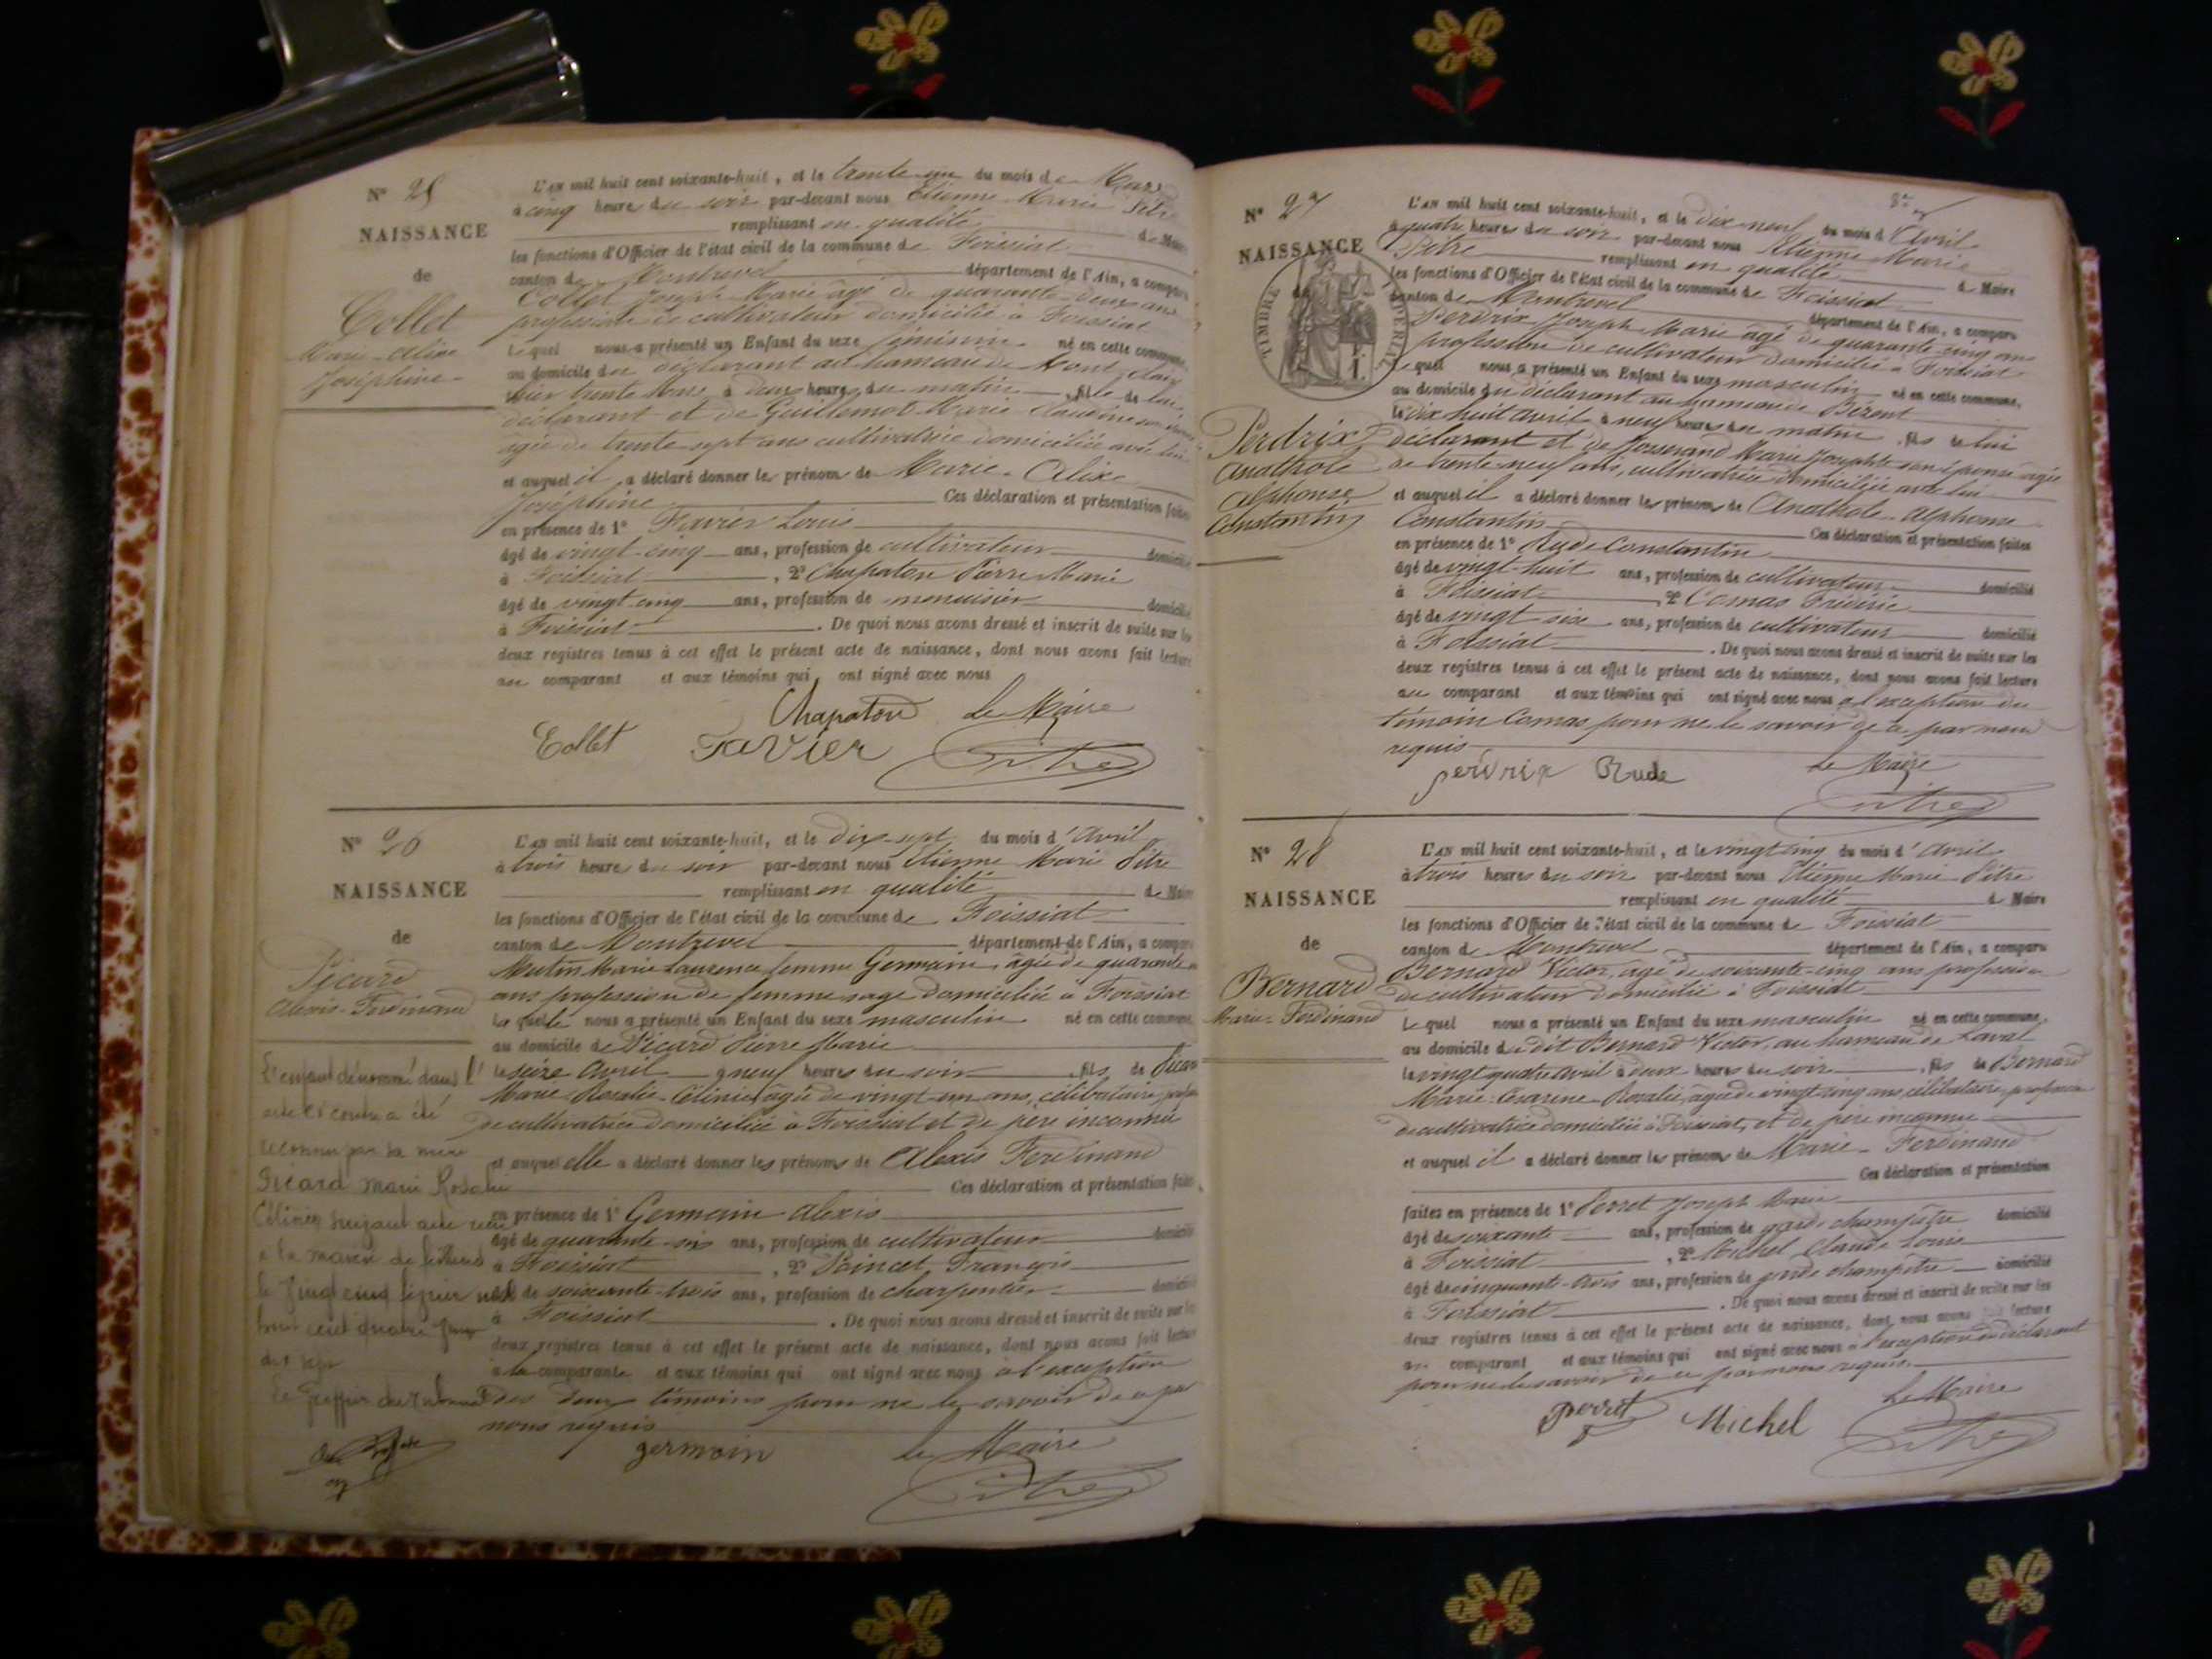 N° 25
NAISSANCE
de
Collet
Marie-Alixe
Joséphine
L'an mil huit cent soixante-huit, et le trente-un du mois de Mars
à cinq heures du soir par-devant nous Etienne Marie Pitre
remplissant en qualité de Maire
les fonctions d'Officier de l'état civil de la commune de Foissiat
canton de Montrevel département de l'Ain, a comparu
Collet Joseph Marie âgé de quarante-deux ans
profession de cultivateur domicilié à Foissiat
Lequel nous a présenté un Enfant du sexe féminin né en cette commune,
au domicile du déclarant au hameau de
hier trente Mars à deux heures du matin fille de lui
déclarant et de Guillemot Marie Claudine son épouse
agée de trente-sept ans cultivatrice domiciliée avec lui
et auquel il a déclaré donner les prénoms de Marie-Alixe
Joséphine Ces déclaration et présentation faites
en présence de 1° Favier Louis
âgé de vingt-cinq ans, profession de cultivateur domicilié
à Foissiat, 2° Chapaton Pierre Marie
âgé de vingt-cinq ans, profession de menuisier domicilié
à Foissiat. De quoi nous avons dressé et inscrit de suite sur les
deux registres tenus à cet effet le présent acte de naissance, dont nous avons fait lecture
au comparant et aux témoins qui ont signé avec nous
Chapaton Le Maire
Collet Favier Pitre
N° 26
NAISSANCE
de
Picard
Alexis-Ferdinand
L'an mil huit cent soixante-huit, et le dix-sept du mois d'Avril
à trois heures du soir par-devant nous Etienne Marie Pitre
remplissant en qualité de Maire
les fonctions d'Officier de l'état civil de la commune de Foissiat
canton de Montrevel département de l'Ain, a comparu
Mutin Marie Laurence femme Germain, âgée de quarante
ans profession de femme sage domiciliée à Foissiat
Laquelle nous a présenté un Enfant du sexe masculin né en cette commune,
au domicile de Picard Pierre Marie
le seize Avril à neuf heures du soir, fils de Picard
Marie Rosalie-Célinie âgée de vingt-un ans, célibataire
de cultivatrice domiciliée à Foissiat et de père inconnu
et auquel elle a déclaré donner les prénoms de Alexis Ferdinand
Ces déclaration et présentation faites
en présence de 1° Germain Alexis
âgé de quarante-six ans, profession de cultivateur domicilié
à Foissiat, 2° Poincet François
âgé de soixante-trois ans, profession de charpentier domicilié
à Foissiat. De quoi nous avons dressé et inscrit de suite sur les
deux registres tenus à cet effet le présent acte de naissance, dont nous avons fait lecture
à la comparante et aux témoins qui ont signé avec nous à l'exception
des deux témoins pour ne le savoir de ce par
nous requis
germain le Maire
Pitre
L'enfant dénommé dans l'
acte ci contre a été
reconnu par sa mère
Picard Marie Rosalie
Célinie suivant acte reçu
à la mairie de
le vingt cinq
huit cent quatre vingt
Le Greffier du Tribunal
N° 27
NAISSANCE
TIMBRE IMPERIAL
Perdrix
Anathole
Alphonse
Constantin
L'an mil huit cent soixante-huit, et le dix-neuf du mois d'Avril
à quatre heures du soir par-devant nous Etienne Marie
Pitre remplissant en qualité de Maire
les fonctions d'Officier de l'état civil de la commune de Foissiat
canton de Montrevel département de l'Ain, a comparu
Perdrix Joseph Marie âgé de quarante-cinq ans
profession de cultivateur domicilié à Foissiat
Lequel nous a présenté un Enfant du sexe masculin né en cette commune,
au domicile du déclarant au hameau de Bézent
le dix huit avril à neuf heures du matin, fils de lui
déclarant et de Josserand Marie Josephte son épouse agée
de trente-neuf ans, cultivatrice domiciliée avec lui
et auquel il a déclaré donner les prénoms de Anathole-Alphonse
Constantin Ces déclaration et présentation faites
en présence de 1° Rude Constantin
âgé de vingt-huit ans, profession de cultivateur domicilié
à Foissiat, 2° Comas Frédéric
âgé de vingt-six ans, profession de cultivateur domicilié
à Foissiat. De quoi nous avons dressé et inscrit de suite sur les
deux registres tenus à cet effet le présent acte de naissance, dont nous avons fait lecture
au comparant et aux témoins qui ont signé avec nous à l'exception du
témoin Comas pour ne le savoir de ce par nous
requis
perdrix Rude Le Maire
Pitre
N° 28
NAISSANCE
de
Bernard
Marie-Ferdinand
L'an mil huit cent soixante-huit, et le vingt cinq du mois d'Avril
à trois heures du soir par-devant nous Etienne Marie Pitre
remplissant en qualité de Maire
les fonctions d'Officier de l'état civil de la commune de Foissiat
canton de Montrevel département de l'Ain, a comparu
Bernard Victor, âgé de soixante-cinq ans profession
de cultivateur domicilié à Foissiat
Lequel nous a présenté un Enfant du sexe masculin né en cette commune,
au domicile dudit Bernard Victor, au hameau de Laval
le vingt quatre avril à deux heures du soir, fils de Bernard
Marie-Césarine-Rosalie, agée de vingt-cinq ans, célibataire, profession
de cultivatrice domiciliée à Foissiat, et de père inconnu
et auquel il a déclaré donner les prénoms de Marie-Ferdinand
Ces déclaration et présentation
faites en présence de 1° Perret Joseph Marie
âgé de soixante ans, profession de garde champêtre domicilié
à Foissiat, 2° Michel Claude Louis
âgé de cinquante-trois ans, profession de garde champêtre domicilié
à Foissiat. De quoi nous avons dressé et inscrit de suite sur les
deux registres tenus à cet effet le présent acte de naissance, dont nous avons fait lecture
au comparant et aux témoins qui ont signé avec nous à l'exception du déclarant
pour ne le savoir de ce par nous requis.
perret Michel Le Maire
Pitre